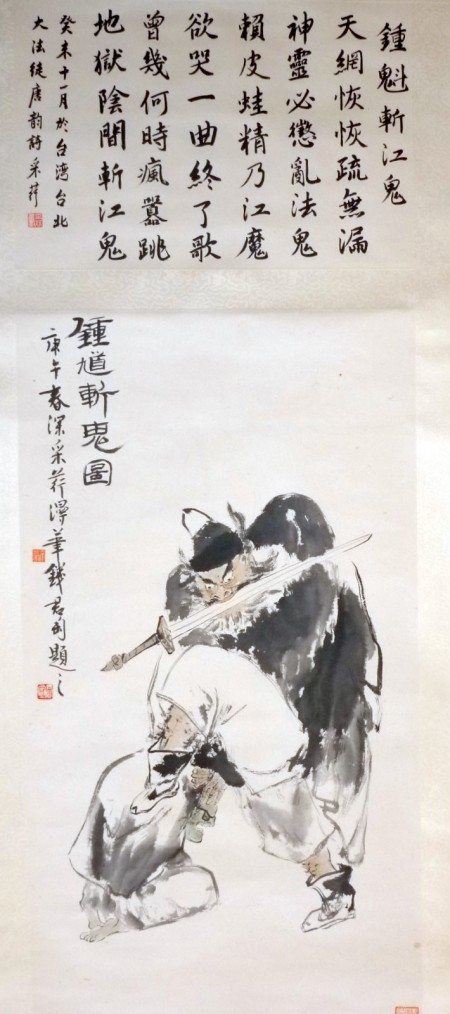 鍾魁斬江鬼
天網恢恢疏無漏
神靈必懲亂法鬼
賴皮蛙精乃江魔
欲哭一曲終了歌
曾幾何時瘋囂跳
地獄陰間斬江鬼
癸未十一月於台湾台北
大法徒唐韵詩采荇
鍾馗斬鬼圖
庚午春深采荇漫筆錢君匋題之